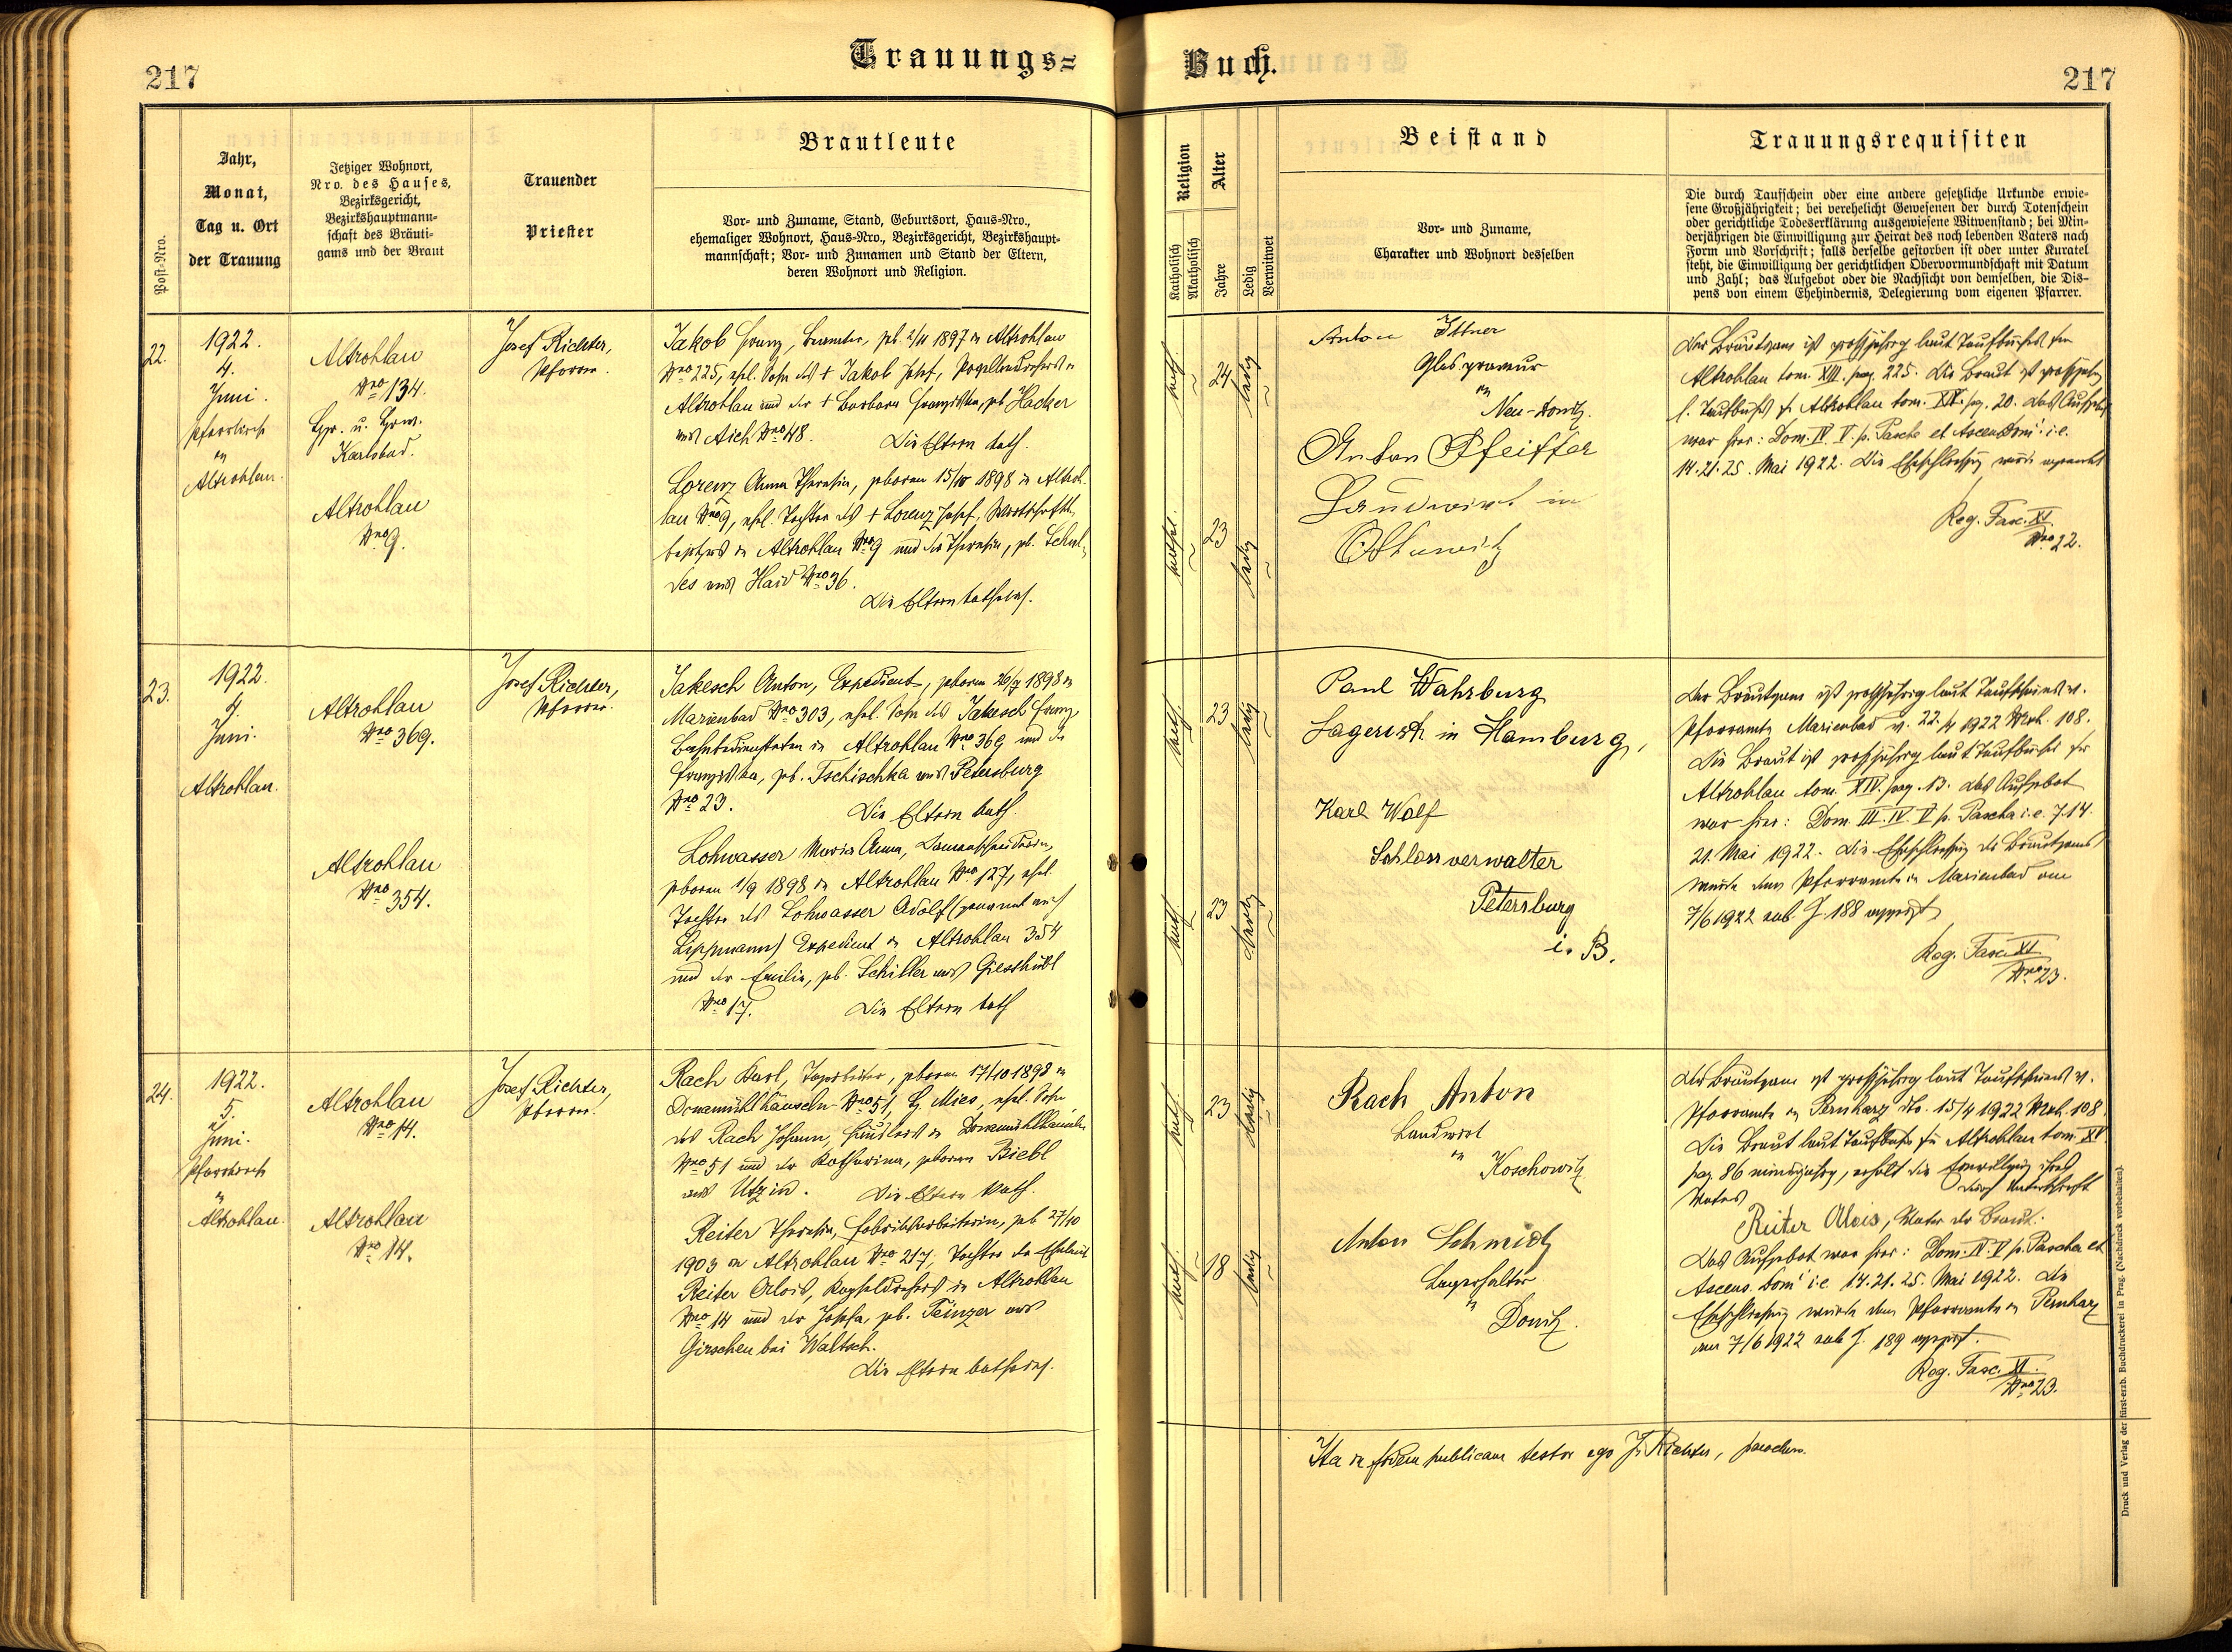 217
Trauungs=
Buch.
217
Post-Nro.
Jahr,
Monat,
Tag u. Ort
der Trauung
Jetziger Wohnort,
Nro. des Hauses,
Bezirksgericht,
Bezirkshauptmann-
schaft des Bräuti-
gams und der Braut
Trauender
Priester
Brautleute
Vor- und Zuname, Stand, Geburtsort, Haus-Nro.,
ehemaliger Wohnort, Haus-Nro., Bezirksgericht, Bezirkshaupt-
mannschaft; Vor- und Zunamen und Stand der Eltern,
deren Wohnort und Religion.
Religion
Katholisch
Akatholisch
Alter
Jahre
Ledig
Verwitwet
Beistand
Vor- und Zuname,
Charakter und Wohnort desselben
Trauungsrequisiten
Die durch Taufschein oder eine andere gesetzliche Urkunde erwie-
sene Großjährigkeit; bei verehelicht Gewesenen der durch Totenschein
oder gerichtliche Todeserklärung ausgewiesene Witwenstand; bei Min-
derjährigen die Einwilligung zur Heirat des noch lebenden Vaters nach
Form und Vorschrift; falls derselbe gestorben ist oder unter Kuratel
steht, die Einwilligung der gerichtlichen Obervormundschaft mit Datum
und Zahl; das Aufgebot oder die Nachsicht von demselben, die Dis-
pens von einem Ehehindernis, Delegierung vom eigenen Pfarrer.
22.
1922.
4.
Juni.
Pfarrkirche
in
Altrohlau.
Altrohlau
Nro 134.
Karlsbad.
Altrohlau
Nro 9.
Josef Richter,
Pfarrer.
Jakob Franz, Beamter, geb. 2/11 1897 in Altrohlau
Nro 225, ehel. Sohn des † Jakob Josef, Porzellandrehers in
Altrohlau und der † Barbara Franziska, geb. Hacker
aus Aich Nro 48. Die Eltern kath.
Lorenz Anna Theresia, geboren 15/10 1898 in Altroh-
lau Nro 9, ehel. Tochter des † Lorenz Josef, Wirtschafts-
besitzers in Altrohlau Nro 9 und der Theresia, geb. Schul-
des aus Haid Nro 36.
Die Eltern katholisch.
kath.
24
ledig
kathol.
23
ledig
Anton Ittner
Glasgraveur
in
Neu-Donitz.
Anton Pfeiffer
Landwirt in
Ottowitz
Der Bräutigam ist großjährig laut Taufbuches für
Altrohlau tom. XIII. pag. 225. Die Braut ist großjährig
l. Taufbuch f. Altrohlau tom. XIV. pg. 20. Das Aufgebot
war hier: Dom. IV. V. p. Pascha et Ascens. Domi i. e.
14. 21. 25. Mai 1922. Die Eheschließung wurde
Reg. Fasc. XI.
Nro 22.
23.
1922.
4.
Juni.
Altrohlau.
Altrohlau
Nro 369.
Altrohlau
Nro 354.
Josef Richter,
Pfarrer.
Jakesch Anton, Expedient, geboren 26/7 1898 in
Marienbad Nro 303, ehel. Sohn des Jakesch Franz,
Bahnbediensteten in Altrohlau Nro 369 und der
Franziska, geb. Tschischka aus Petersburg
Nro 23. Die Eltern kath.
Lohwasser Maria Anna, Damenschneiderin,
geboren 1/9 1898 in Altrohlau Nro 127, ehel.
Tochter des Lohwasser Adolf (genannt auch
Lippmann) Expedient in Altrohlau 354
und der Emilie, geb. Schiller aus Giesshübl
Nro 17. Die Eltern kath.
kath.
23
ledig
kath.
23
ledig
Paul Wahrburg
Lagerist in Hamburg,
Karl Wolf
Schlossverwalter
Petersburg
i. B.
Der Bräutigam ist großjährig laut Taufscheines v.
Pfarramte Marienbad v. 22./4 1922 Mrk. 108.
Die Braut ist großjährig laut Taufbuches für
Altrohlau tom. XIV. pag. 13. Das Aufgebot
war hier: Dom. III. IV. V p. Pascha i. e. 7. 14.
21. Mai 1922. Die Eheschließung des Bräutigams
wurde dem Pfarramte in Marienbad am
7/6 1922 sub. J. 188 angezeigt
Reg. Fasc. XI
Nro 23.
24.
1922.
5.
Juni.
Pfarrkirche
in
Altrohlau.
Altrohlau
Nro 14.
Altrohlau
Nro 14.
Josef Richter,
Pfarrer.
Rach Karl, Tagarbeiter, geboren 17/10 1898 in
Ornamühlhäuseln Nro 51, Bz. Mies, ehel. Sohn
des Rach Johann, Häuslers in
Nro 51 und der Katharina, geboren Biebl
aus Utzin. Die Eltern kath.
Reiter Theresia, Fabriksarbeiterin, geb. 27/10
1903 in Altrohlau Nro 217, Tochter der Eheleute
Reiter Alois, in Altrohlau
Nro 14 und der Josefa, geb. Teinzer aus
Girschen bei Waltsch.
Die Eltern katholisch.
kath.
23
ledig
kath.
18
ledig
Rach Anton
Landwirt
in
Koschowitz
Anton Schmidt
Lagerhalter
in
Donitz.
Der Bräutigam ist großjährig laut Taufscheines v.
Pfarramte in Pernharz dto. 15/4 1922 Mrk. 108.
Die Braut laut Taufbuches für Altrohlau tom. XV.
pag. 86 minderjährig, erhält die Einwilligung ihres
Vaters durch Unterschrift
Reiter Alois, Vater der Braut.
Das Aufgebot war hier: Dom. IV. V p. Pascha et
Ascens. Domi i. e. 14. 21. 25. Mai 1922. Die
Eheschließung wurde dem Pfarramte in Pernharz
am 7/6 1922 sub J. 189 angezeigt.
Reg. Fasc. XI.
Nro 23.
Ita in fidem publicam testor ego J. Richter, parochus.
Druck und Verlag der fürst-erzb. Buchdruckerei in Prag. (Nachdruck vorbehalten).